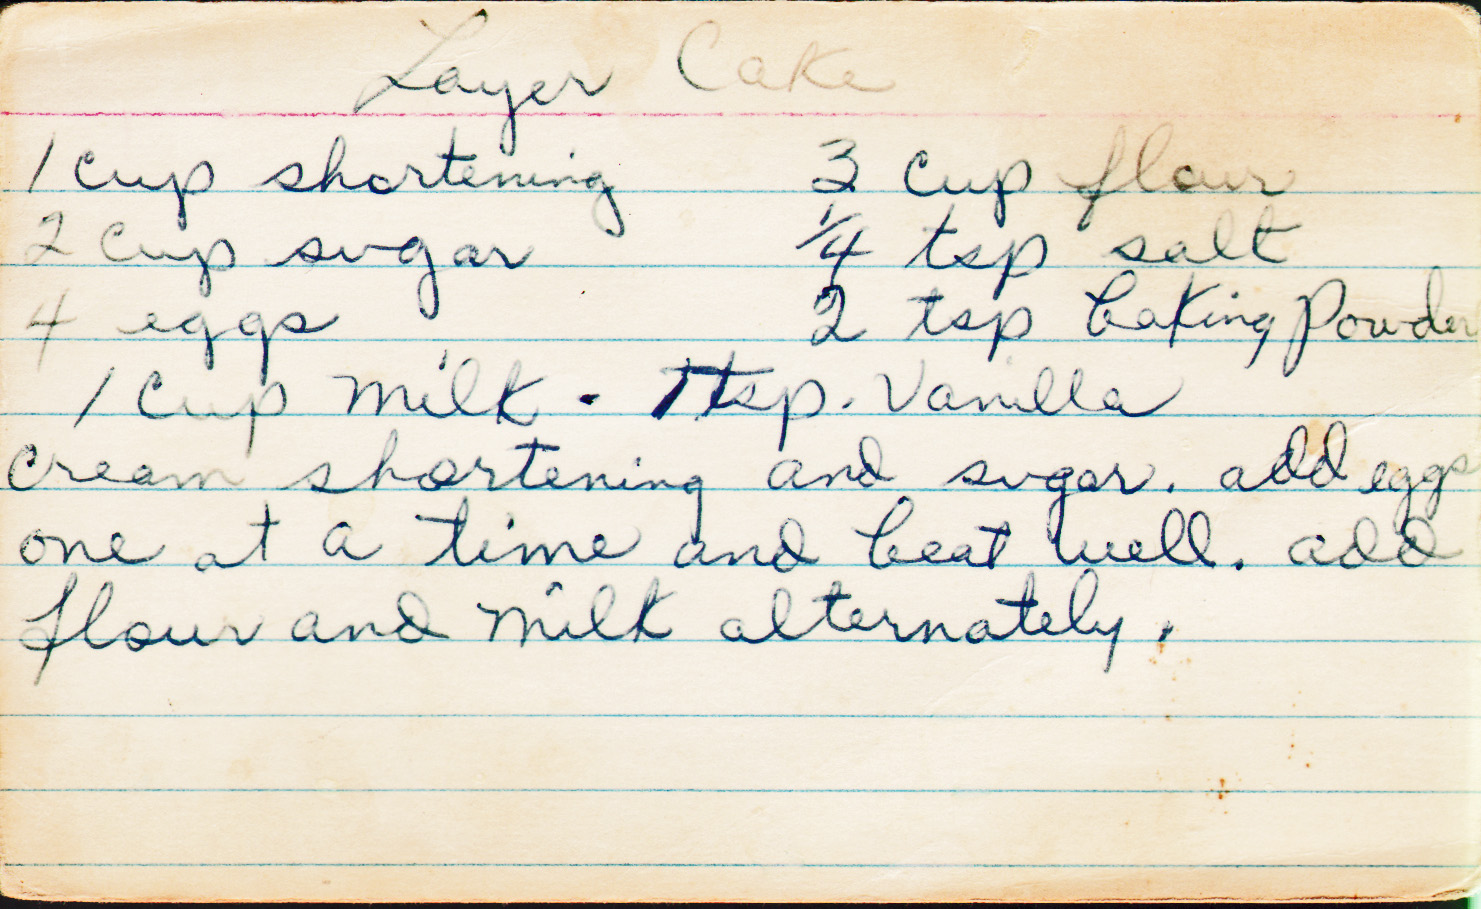 Layer Cake
1 cup shortening 3 cup flour
2 cup sugar 1/4 tsp salt
4 eggs 2 tsp baking Powder
1 cup milk. 1 tsp. Vanilla
cream shortening and sugar. add eggs
one at a time and beat well. add
flour and milk alternately.